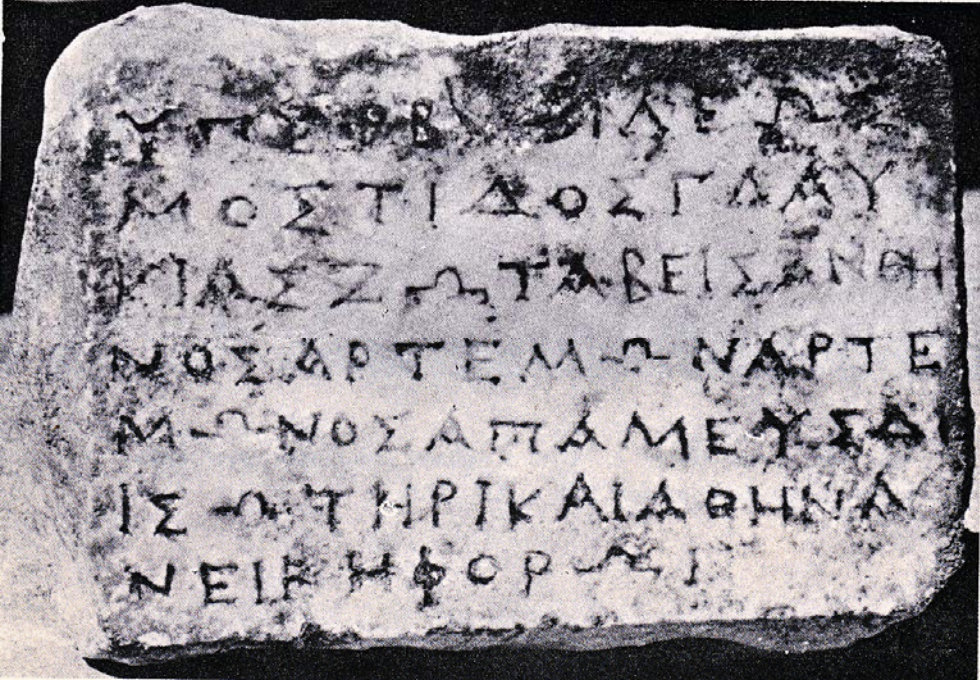 ΥΠΕΡΒΑΣΙΛΕΩΣ
ΜΟΣΤΙΔΟΣΓΛΑΥ
ΚΙΑΣΖΩΤΑΒΕΙΣΑΝΘΗ
ΝΟΣΑΡΤΕΜΩΝΑΡΤΕ
ΜΩΝΟΣΑΠΑΜΕΥΣΔΙ
ΙΣΩΤΗΡΙΚΑΙΑΘΗΝΑ
ΝΕΙΚΗΦΟΡΩΙ